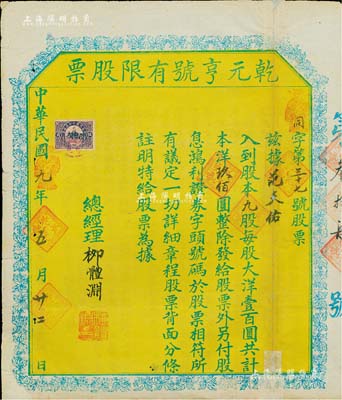 乾元亨號有限股票
同字第三七號股票
茲據范天佑
入到股本九股每股大洋壹百圓共計
本洋玖佰圓整除發給股票外另付股
息鴻利證券字頭號碼於股票相符所
有議定一切詳細章程股票背面分條
註明特給股票為據
總經理 柳體淵
中華民國九年五月廿二日
號